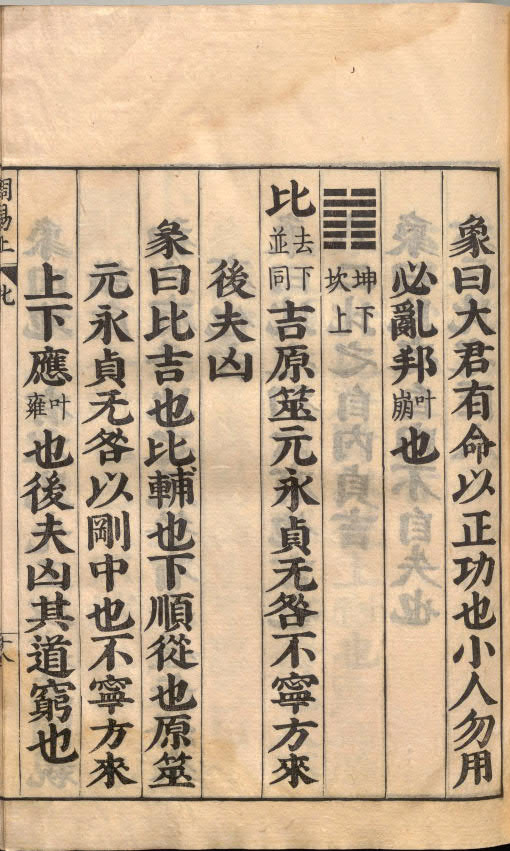 象曰大君有命以正功也小人勿用
必亂邦叶崩也
坤下
坎上
比去下並同吉原筮元永貞无咎不寧方來
後夫凶
彖曰比吉也比輔也下順從也原筮
元永貞无咎以剛中也不寧方來
上下應叶雍也後夫凶其道窮也
周易上
比
十八